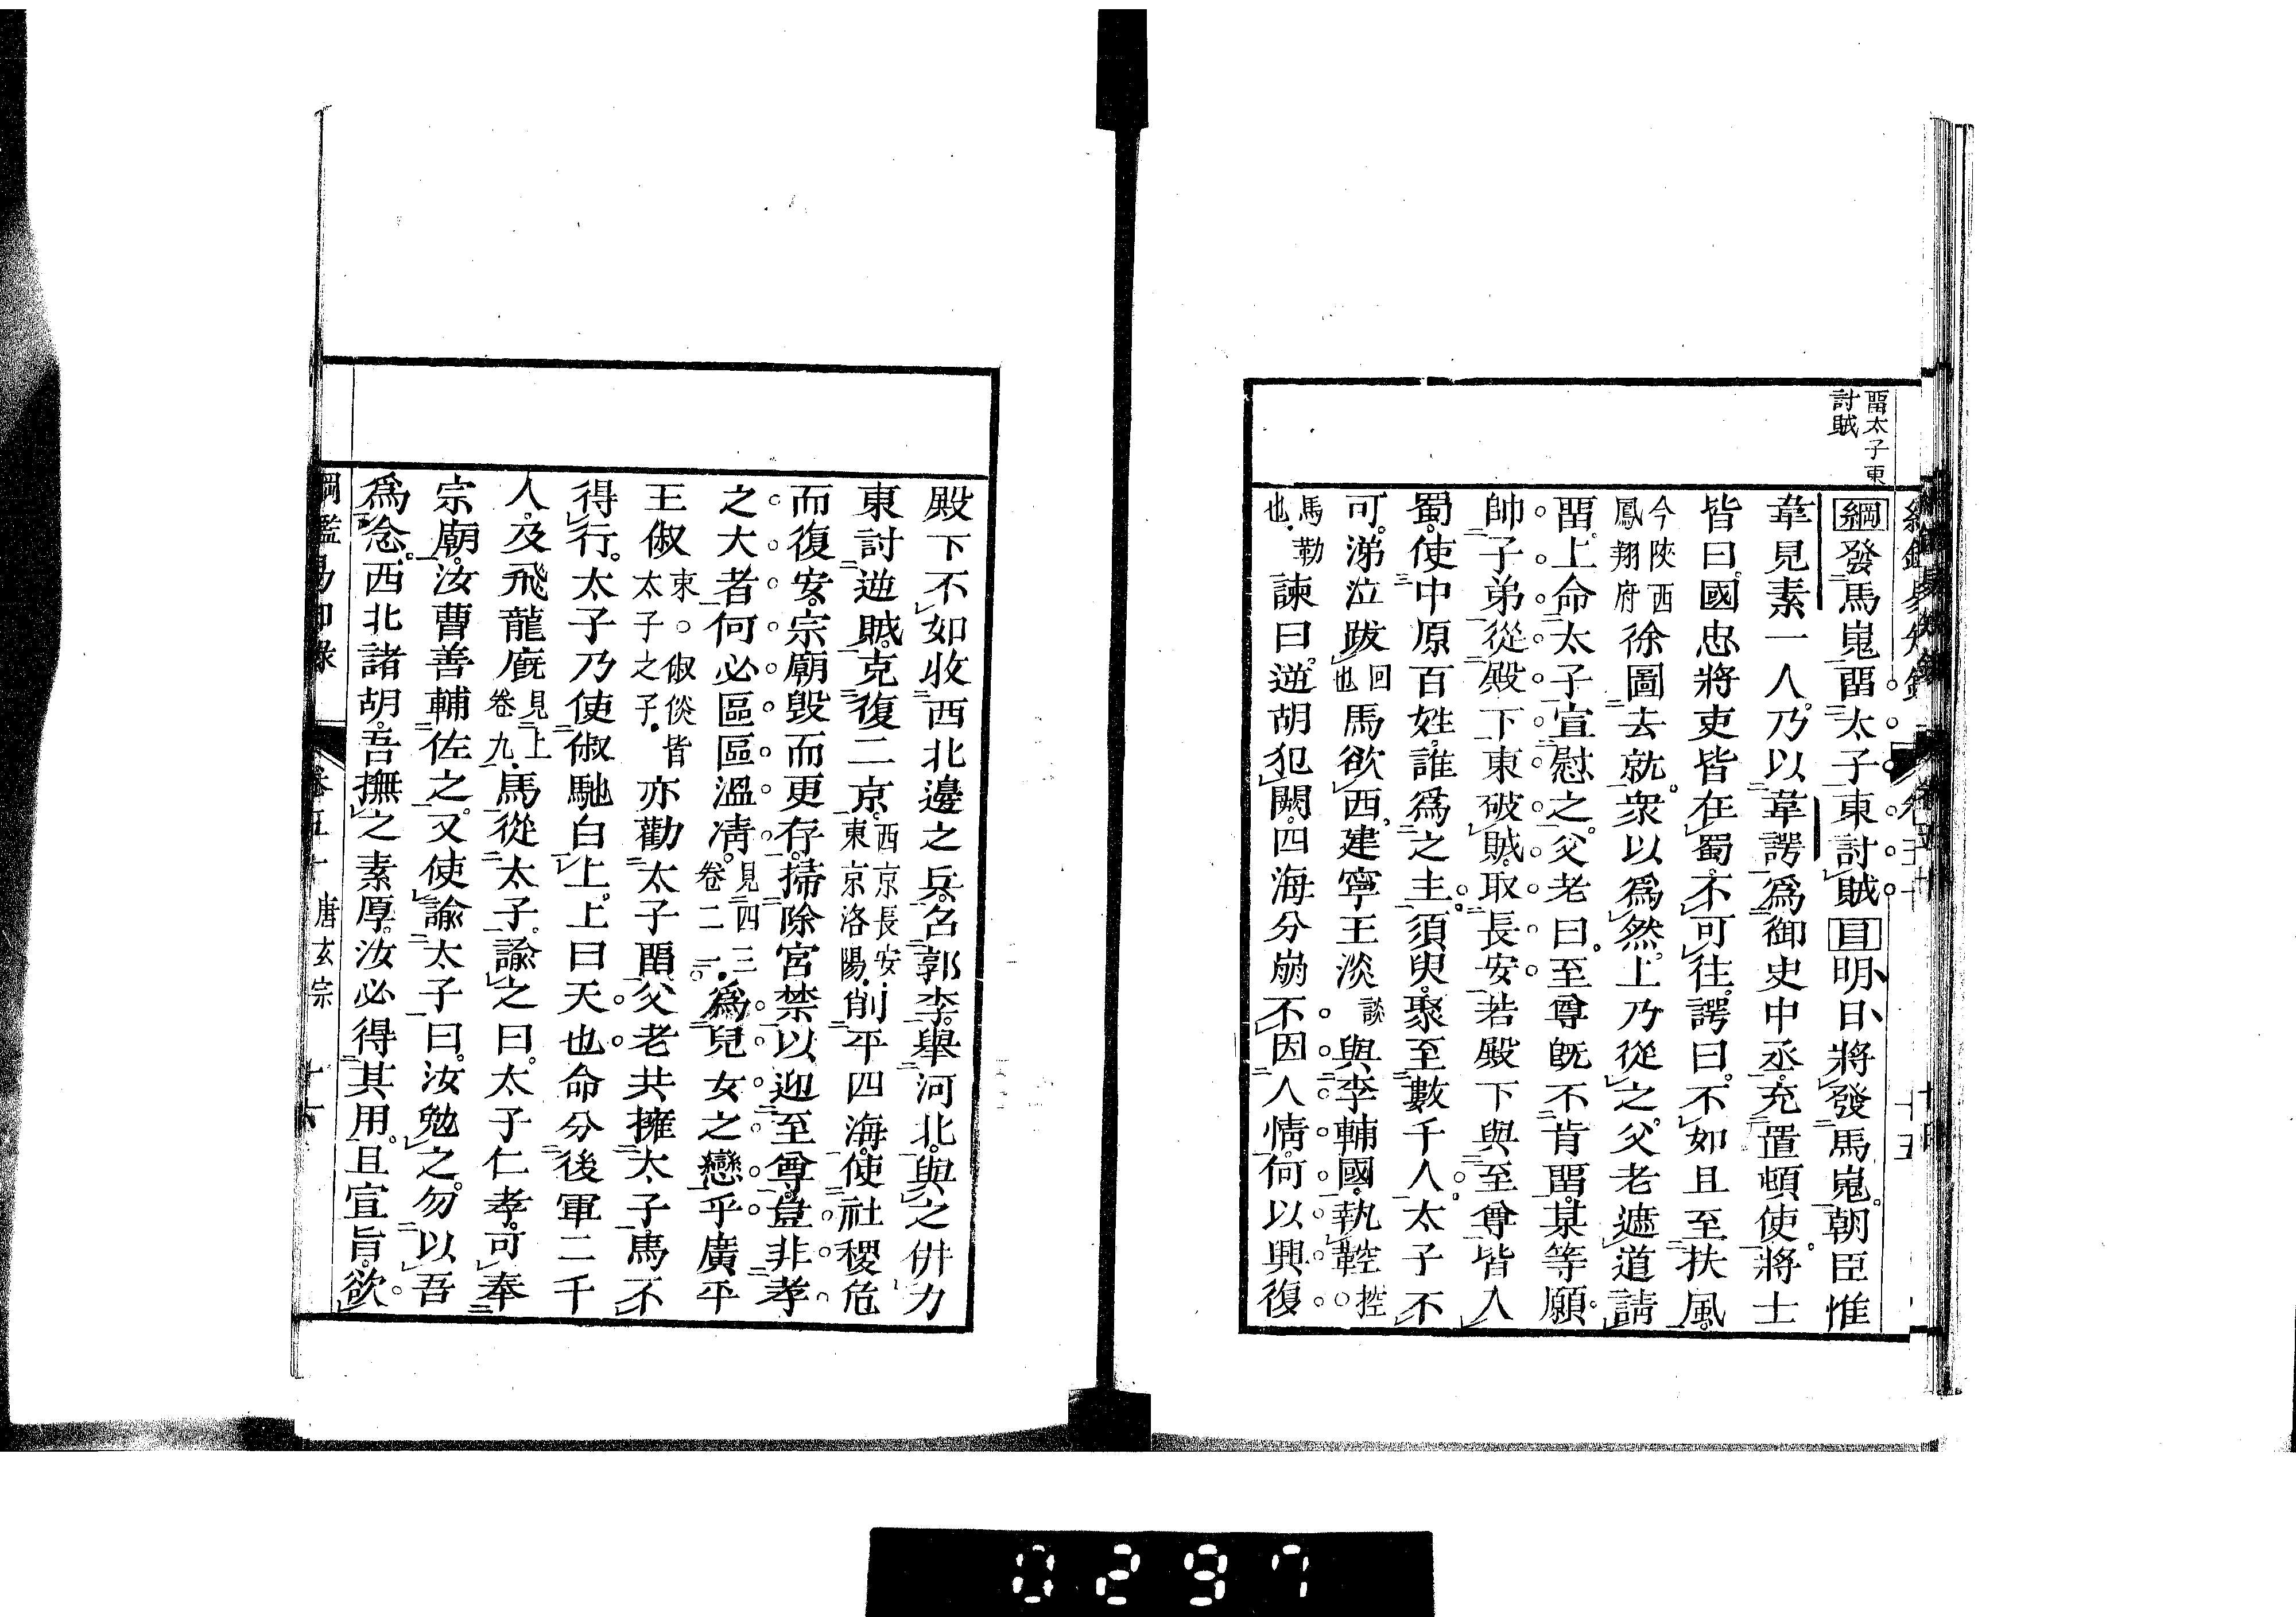 畱太子東
討賊
綱發馬嵬畱太子東討賊目明日將發馬嵬朝臣惟
韋見素一人乃以韋諤爲御史中丞充置頓使將士
皆曰國忠將吏皆在蜀不可往諤曰不如且至扶風
今陝西鳳翔府徐圖去就衆以爲然上乃從之父老遮道請
畱上命太子宣慰之父老曰至尊旣不肯畱某等願
帥子弟從殿下東破賊取長安若殿下與至尊皆入
蜀使中原百姓誰爲之主須臾聚至數千人太子不
可涕泣跋回也馬欲西建寧王淡談與李輔國執鞚控
馬勒也諫曰逆胡犯闕四海分崩不因人情何以興復
殿下不如收西北邊之兵名郭李舉河北與之倂力
東討逆賊克復二京西京長安東京洛陽削平四海使社稷危
而復安宗廟毁而更存掃除宮禁以迎至尊豈非孝
之大者何必區區溫凊見四三卷二一爲兒女之戀乎廣平
王俶東俶倓皆太子之子亦勸太子畱父老共擁太子馬不
得行太子乃使俶馳白上上曰天也命分後軍二千
人及飛龍廐見上卷九馬從太子諭之曰太子仁孝可奉
宗廟汝曹善輔佐之又使諭太子曰汝勉之勿以吾
爲念西北諸胡吾撫之素厚汝必得其用且宣旨欲
唐玄宗
0297